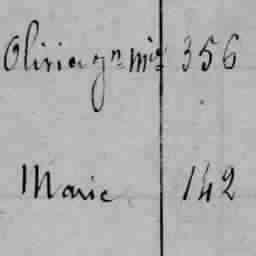 Olivia gn mie 356
Marie 142